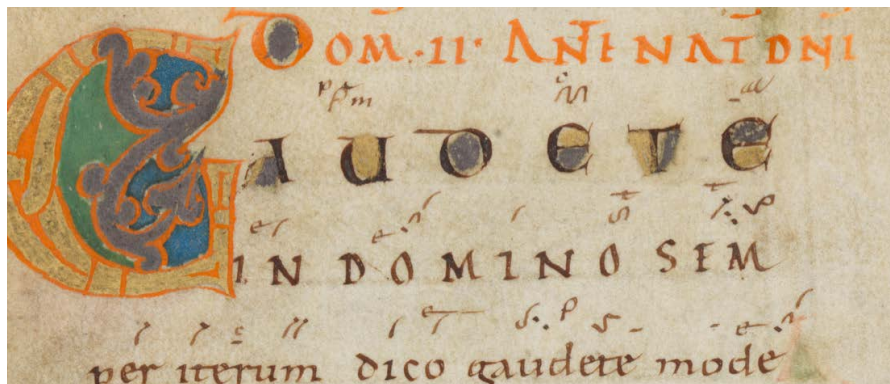 DOM·II· ANTE NAT DNI
GAUDETE
IN DOMINO SEM
per iterum dico gaudete mode